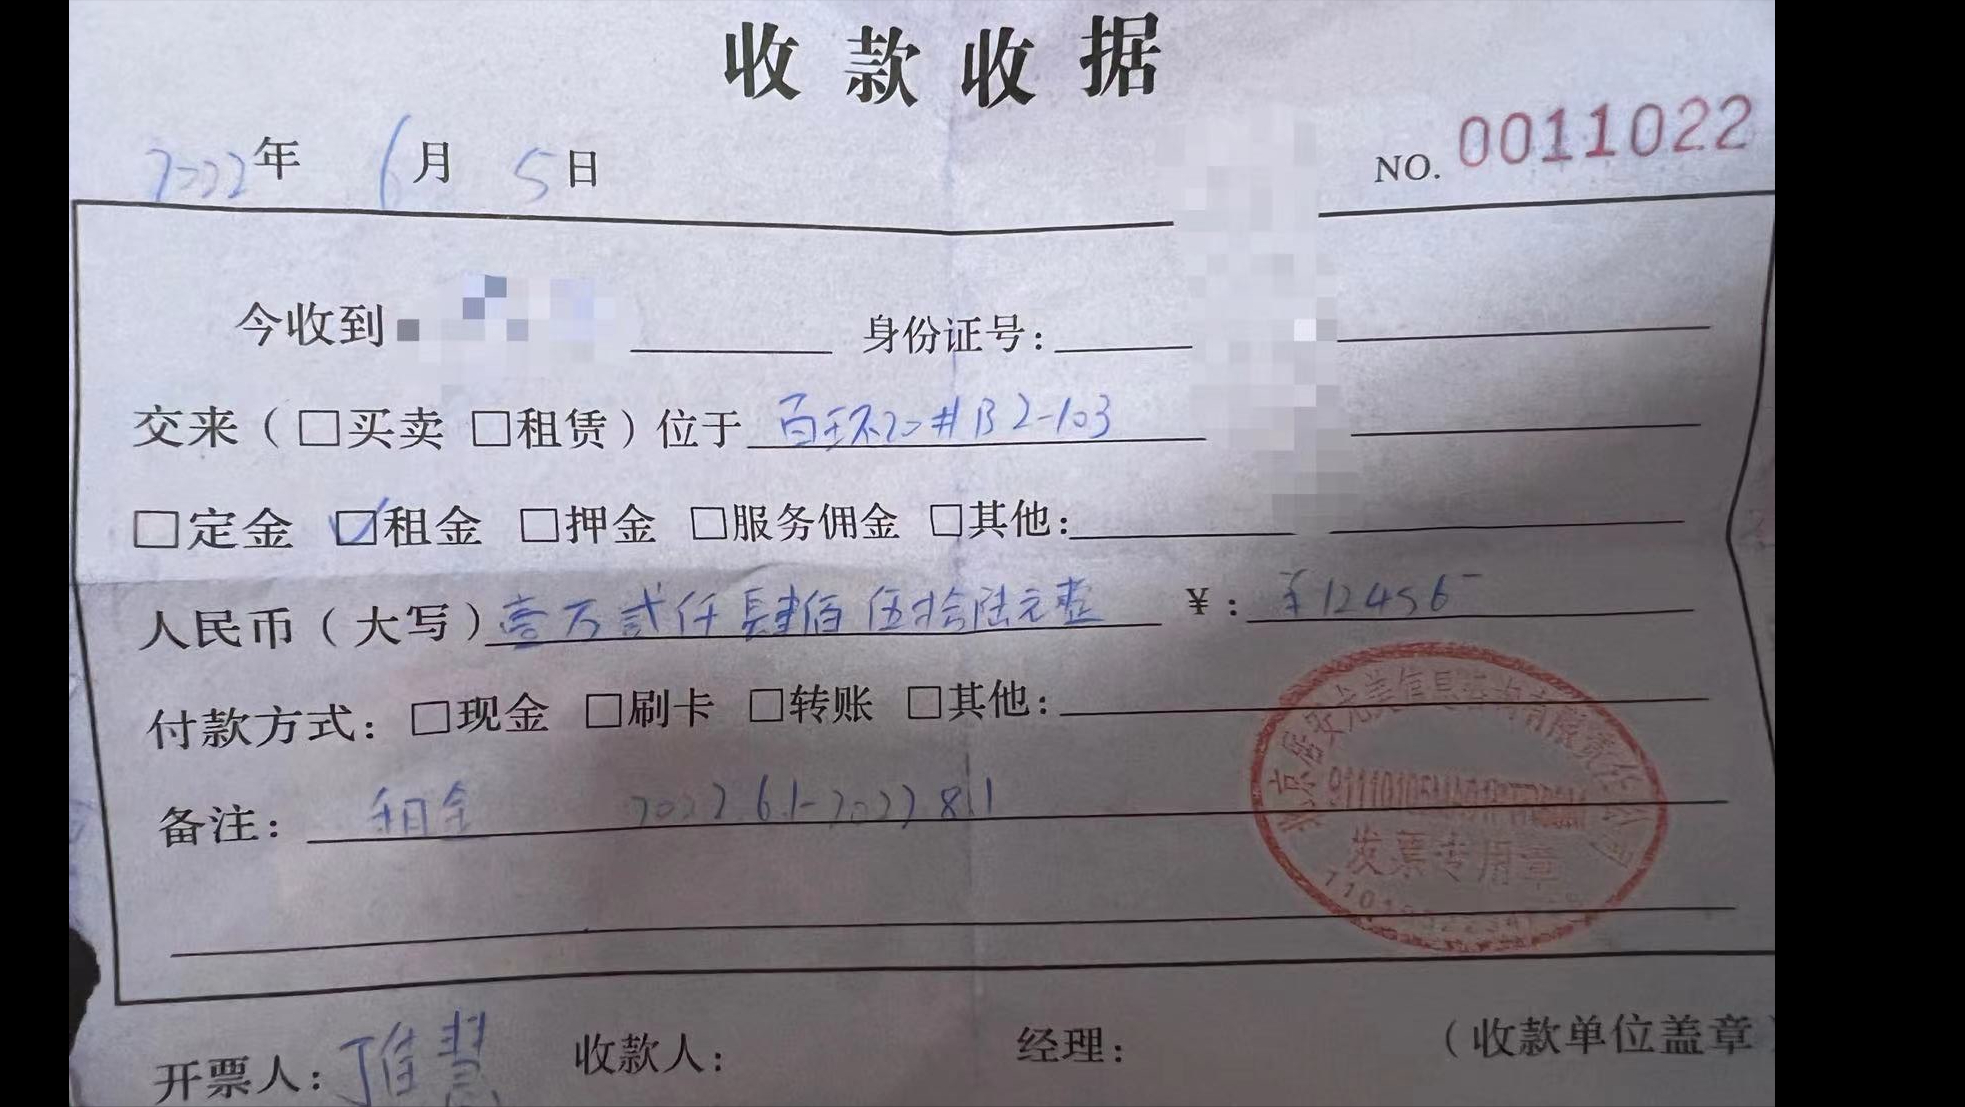 收款收据
2022年 6月 5日 NO. 0011022
今收到 身份证号:
交来(□买卖 □租赁)位于 百环20#B2-103
□定金 ☑租金 □押金 □服务佣金 □其他:
人民币(大写)壹万贰仟肆佰伍拾陆元整 ¥: ¥12456-
付款方式: □现金 □刷卡 □转账 □其他:
备注: 租金 2022 6.1-2022 8.1
北京居安尤美信息咨询有限责任公司
发票专用章
开票人: 慧 收款人: 经理: (收款单位盖章)